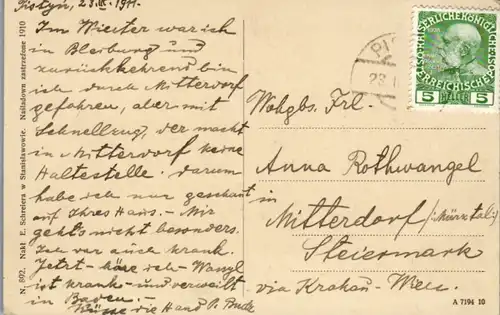 Pistyn, 23. IX. 1911.
Im Winter war ich
in Bleiburg und
zurückkehrend bin
ich durch Mitterdorf
gefahren, aber mit
Schnellzug, der macht
in Mitterdorf keine
Haltestelle. Darum
habe ich nur geschaut
auf Ihres Haus. – Mir
geht's nicht besonders.
Ich war auch krank.
Jetzt –
ist krank – und verweilt
in Baden. –
Küsse die Hand P.
N. 892. Nakł. E. Schreiera w Stanisławowie. Naśladown. zastrzeżone 1910
KAISERLICHE KÖNIGLICHE
ÖSTERREICHISCHE
5 5
PIS
23
Wohgb. Frl.
Anna Rothwangel
in
Mitterdorf /: Mürztal :/
Steiermark
via Krakau – Wien.
A 7194 10